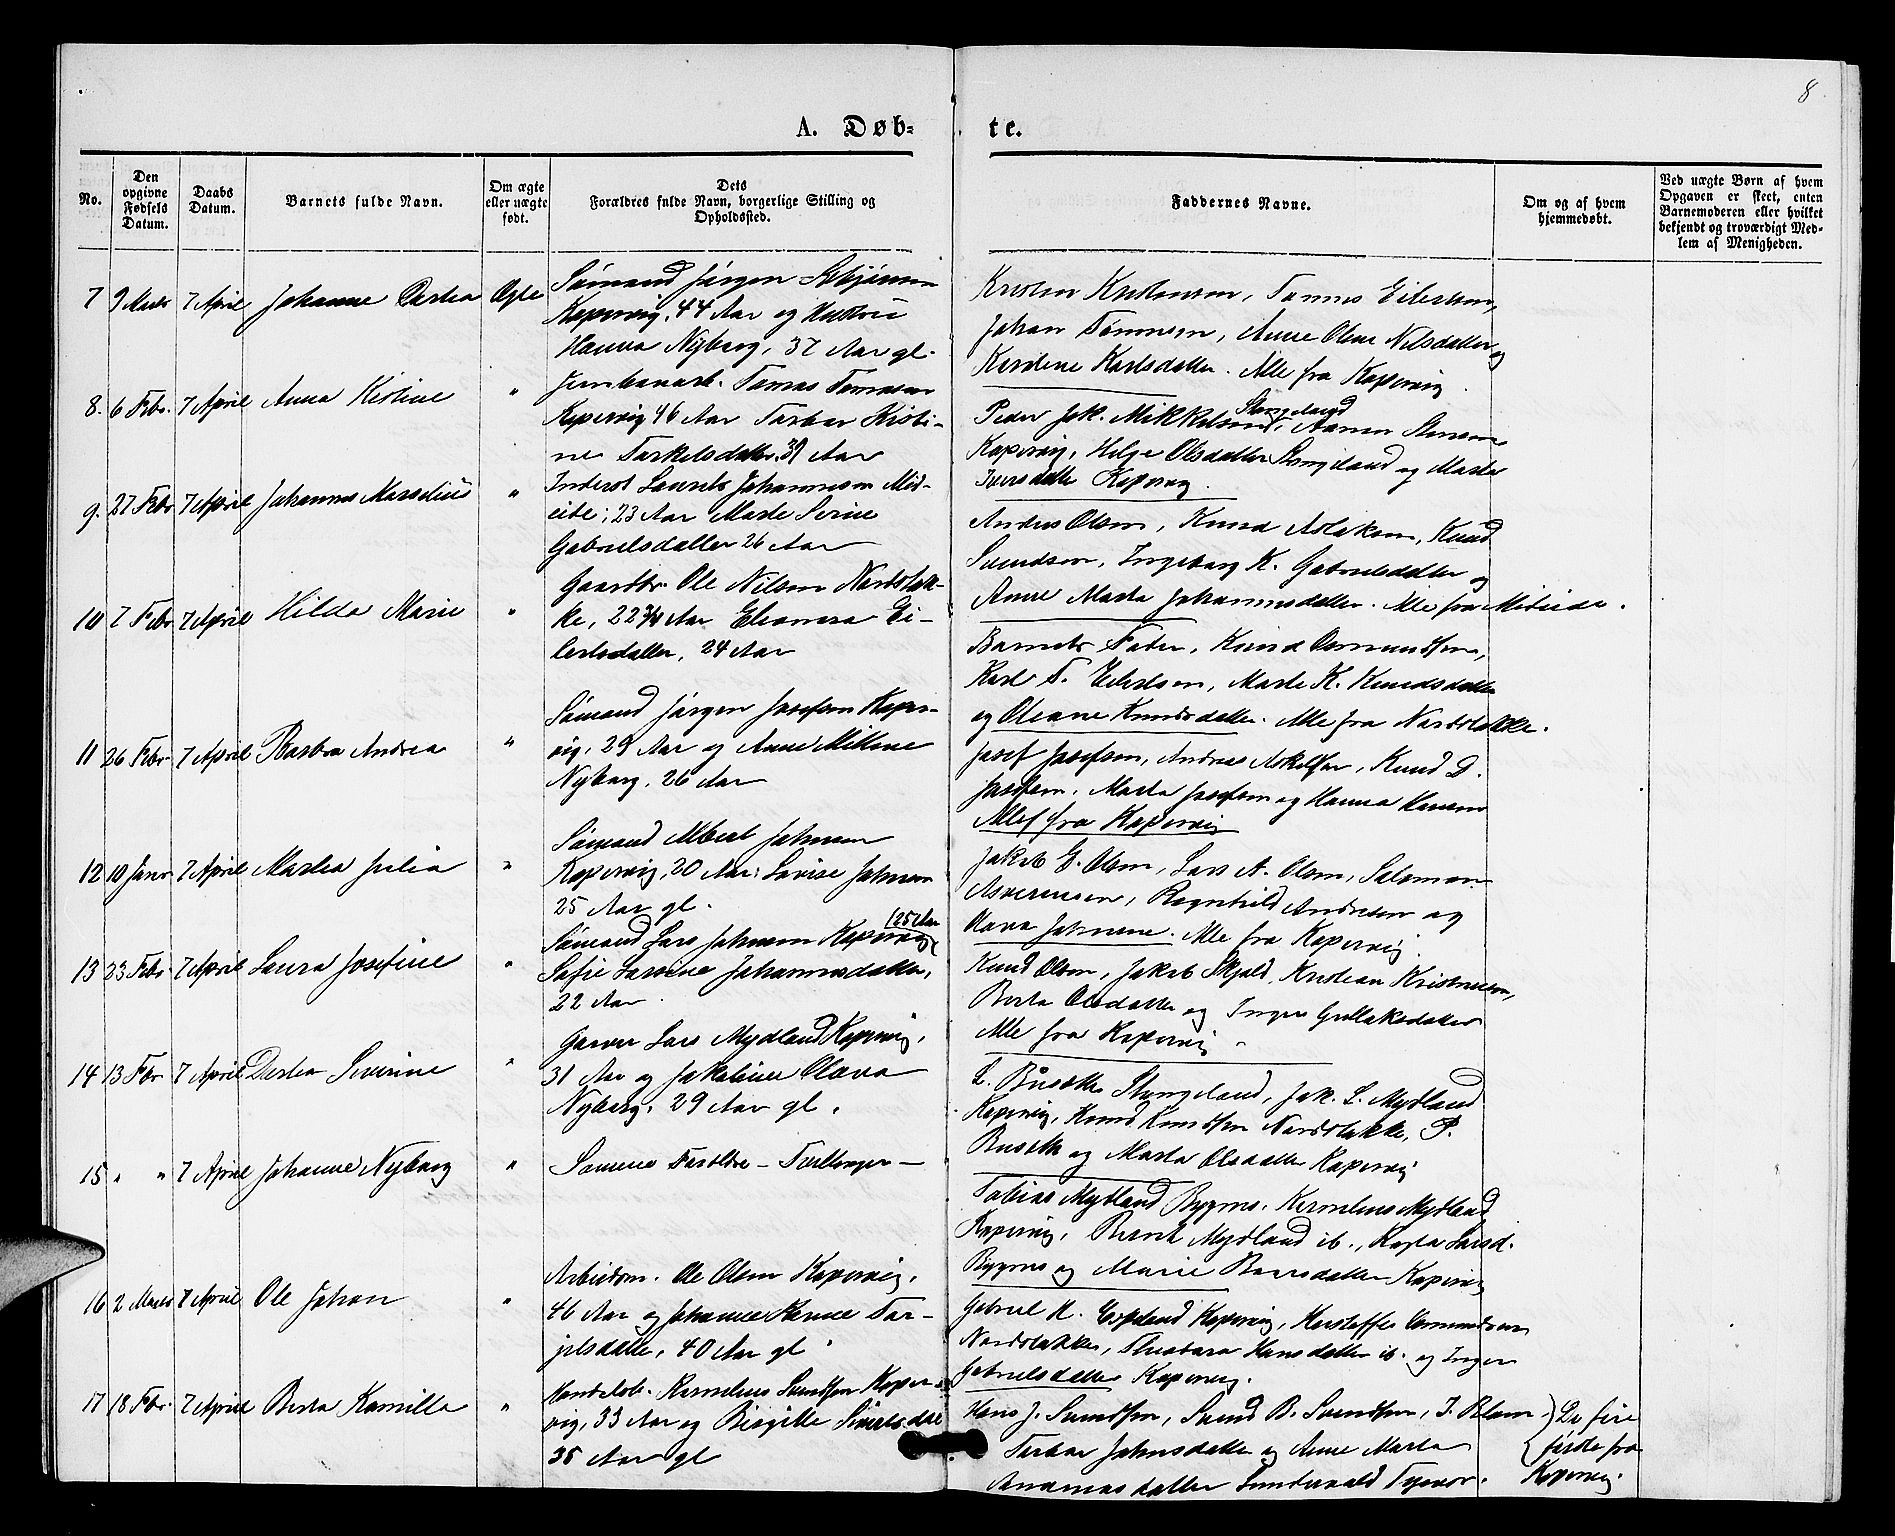 8
A. Døb=
te.
No.
Den opgivne Fødsels Datum.
Daabs Datum.
Barnets fulde Navn.
Om ægte eller uægte født.
Dets Forældres fulde Navn, borgerlige Stilling og Opholdssted.
Faddernes Navne.
Om og af hvem hjemmedøbt.
Ved uægte Børn af hvem Opgaven er skeet, enten Barnemoderen eller hvilket bekjendt og troværdigt Medlem af Menigheden.
7 9 Marts 7 April Johanne Dortea Ægte
Sømand Jørgen
Kopervig, 44 Aar og Hustru
Hanna Nyborg, 37 Aar gl.
Johan Tønnesen, Anne Oline Nilsdatter og
Karlsdatter. Alle fra Kopervig.
8. 6 Febr. 7 April Anna Kistine "
Tomas Tomasen
Kopervig 46 Aar Torbor Kisti-
ne Torkelsdatter 39 Aar
Peder Jak. Mikkelsen Stangeland,
Kopervig, Helge Olsdatter Stangeland og Marte
Iversdatter Kopervig.
9. 27 Febr 7 April Johannes Marselius "
Inderst Laurits Johannesen Med-
eide, 23 Aar Marte Serine
Gabrielsdatter 26 Aar
Anders Olsen, Knud Aslaksen, Knud
Svendsen, Ingeborg K. Gabrielsdatter og
Anne Marta Johannesdatter. Alle fra Medeide.
10 7 Febr 7 April Hilda Marie "
Gaardbr. Ole Nilsen Nordstok-
ke, 22 3/4 Aar Eleonora Ei-
lertsdatter, 24 Aar
Barnets Fader, Knud Osmundsen,
Karl T. Eilertsen, Marte K. Knudsdatter
og Oleane Knudsdatter. Alle fra Nordstokke.
11 26 Febr. 7 April Barbra Andrea "
Sømand Jørgen Josefsen Koper-
vig, 29 Aar og Anne Miltine
Nyborg, 26 Aar
Josef Josefsen, Andreas Askelsen, Knud D.
Josefsen, Marta Josefsen og Hanna Hansen
Alle fra Kopervig
12 10 Janr 7 April Martea Julia "
Sømand Albert Johnsen
Kopervig, 20 Aar, Lovise Johnsen
25 Aar gl.
Jakob G. Olsen, Lars A. Olsen, Salomon
Ragnhild Andresen og
Olava Johnsen. Alle fra Kopervig.
13 23 Febr 7 April Laura Josefine "
Sømand Lars Johnsen Kopervig (25 Aar
Sofie Johannesdatter,
22 Aar.
Knud Olsen, Jakob Skjold, Kristian Kristensen,
Berta Olsdatter og Inger Gullaksdatter
Alle fra Kopervig
14 13 Febr 7 April Dortea Severine "
Garver Lars Mydland Kopervig,
31 Aar og Jakobine Olava
Nyborg, 29 Aar gl.
Stangeland, Jak. L. Mydland
Kopervig, Knud Knudsen Nordstokke, P.
og Marta Olsdatter Kopervig
15 " " 7 April Johanne Nyborg "
Samme Forældre – Tvillinger –
Tobias Mydland Bygnes, Kornelius Mydland
Kopervig, Berent Mydland ib., Larsd.
Bygnes og Marie Kopervig
16 2 Marts 7 April Ole Johan "
Arbeidsm. Ole Olsen Kopervig,
46 Aar og Johanne Tor-
jilsdatter, 40 Aar gl.
Gabriel H. Kopervig, Osmundsen
Nordstokke, Hansdatter ib. og Inger
Gabrielsdatter Kopervig.
17 18 Febr. 7 April Berta Kamilla "
Kornelius Svendsen Koper-
vig, 33 Aar og Birgitte Sivertsdatter
35 Aar gl
Hans J. Svendsen, Svend B. Svendsen, J. Blom
Torbor Johnsdatter og Anne Marta
Tysvær.
De fire
første fra
Kopervig.